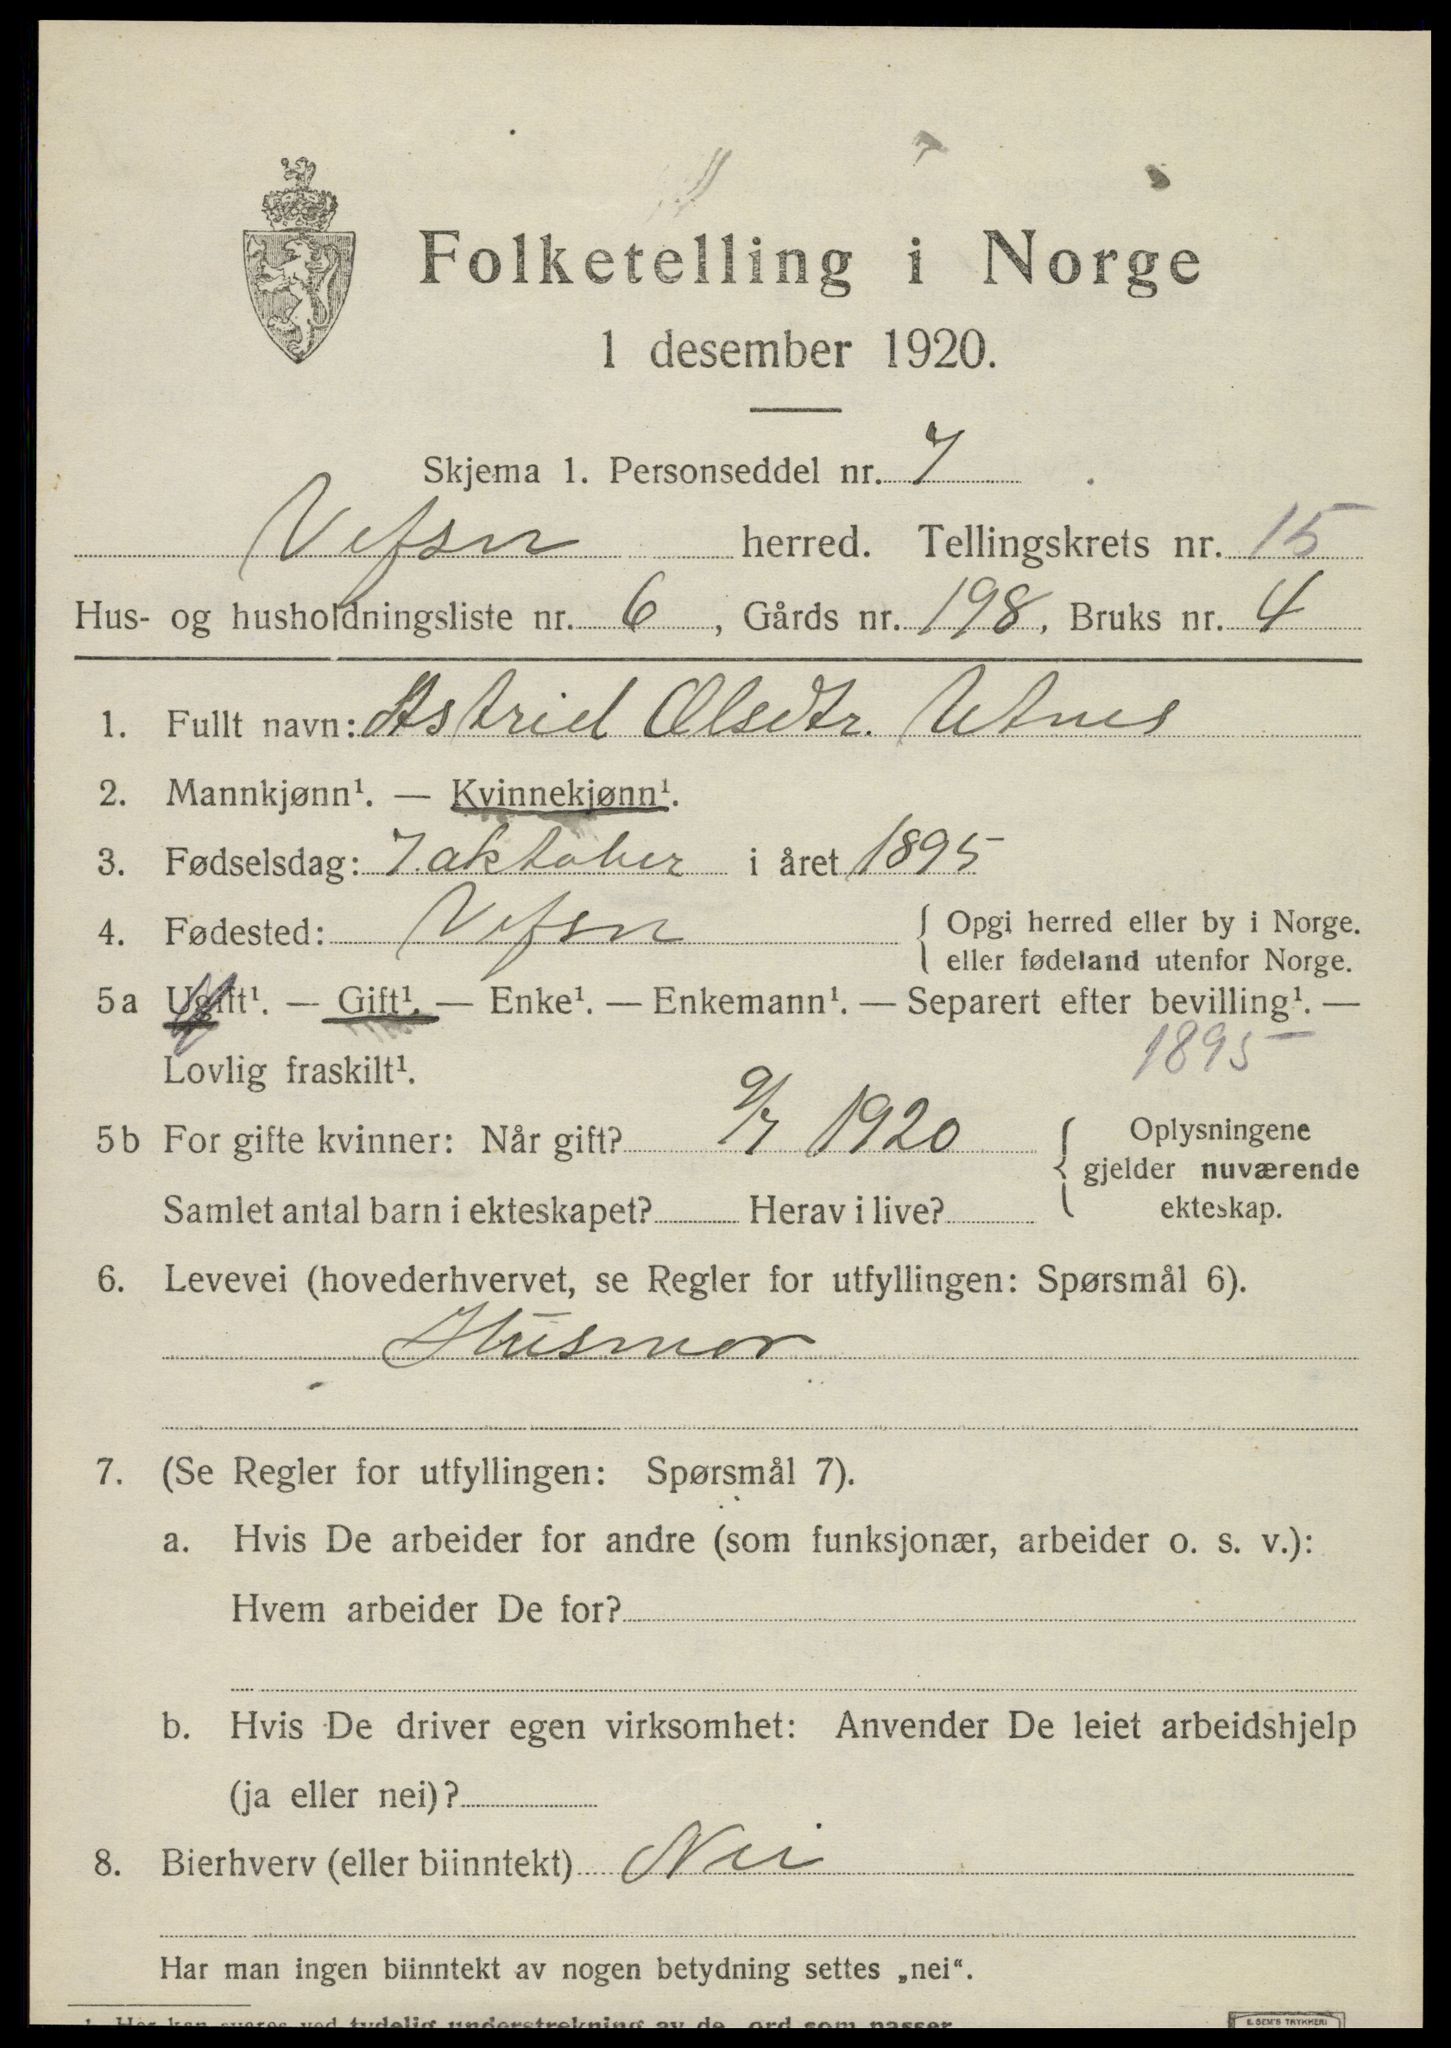 Folketelling i Norge
1 desember 1920.
Skjema 1. Personseddel nr. 7
Vefsn herred. Tellingskrets nr. 15
Hus- og husholdningsliste nr. 6, Gårds nr. 198, Bruks nr. 4
1. Fullt navn: Astrid Olsdtr. Utnes
2. Mannkjønn¹. — Kvinnekjønn¹.
3. Fødselsdag: 7. aktober i året 1895
4. Fødested: Vefsn { Opgi herred eller by i Norge.
eller fødeland utenfor Norge.
5a Ugift¹. — Gift¹. — Enke¹. — Enkemann¹. — Separert efter bevilling¹. —
Lovlig fraskilt¹. 1895
5b For gifte kvinner: Når gift? 9/7 1920 { Oplysningene
gjelder nuværende
Samlet antal barn i ekteskapet? Herav i live? ekteskap.
6. Levevei (hovederhvervet, se Regler for utfyllingen: Spørsmål 6).
Husmor
7. (Se Regler for utfyllingen: Spørsmål 7).
a. Hvis De arbeider for andre (som funksjonær, arbeider o. s. v.):
Hvem arbeider De for?
b. Hvis De driver egen virksomhet: Anvender De leiet arbeidshjelp
(ja eller nei)?
8. Bierhverv (eller biinntekt) Nei
Har man ingen biinntekt av nogen betydning settes „nei“.
¹ Her kan svares ved tydelig understrekning av de ord som passer.
E. SEM'S TRYKKERI